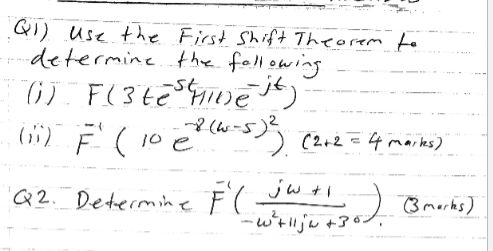 Q1) Use the First Shift Theorem to
determine the following
(i) F(3te^{-5t}H(t)e^{-jt})
(ii) F^{-1}(10e^{-8(ω-5)^2}) (2+2 = 4 marks)
Q2. Determine F^{-1}((jω+1)/(-ω^2+11jω+30)) (3 marks)